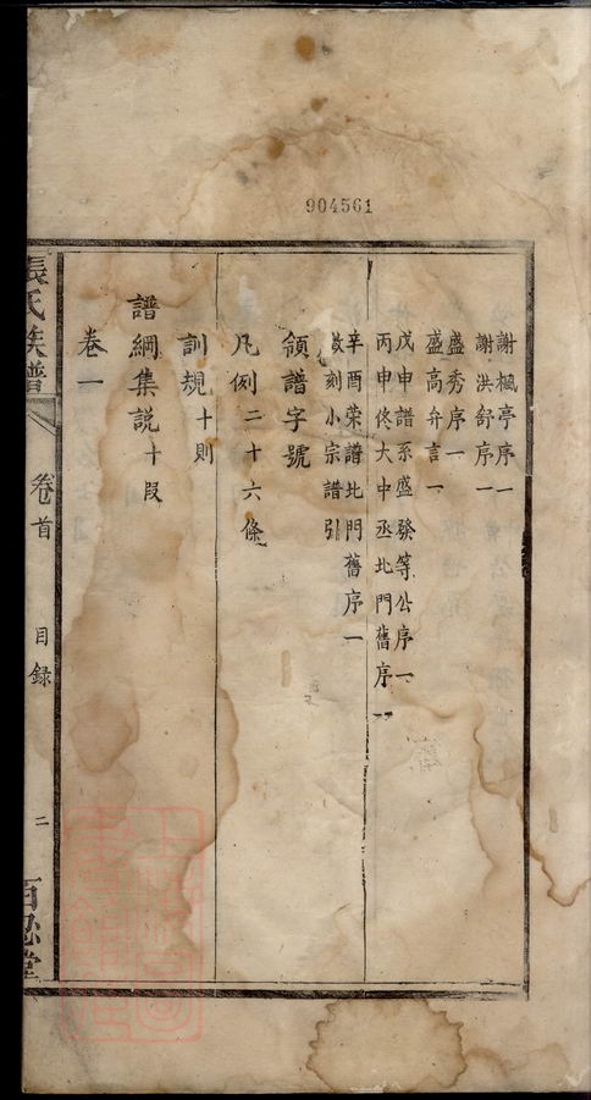 904561
謝楓亭序一
謝洪舒序一
盛秀序一
盛高弁言一
戊申譜系盛發等公序一
丙申佟大中丞北門舊序一
辛酉荣譜北門舊序一
刻小宗譜引
領譜字號
凡例二十六條
訓規十則
譜綱集説十段
卷一
張氏族譜
卷首
目録
二
百忍堂